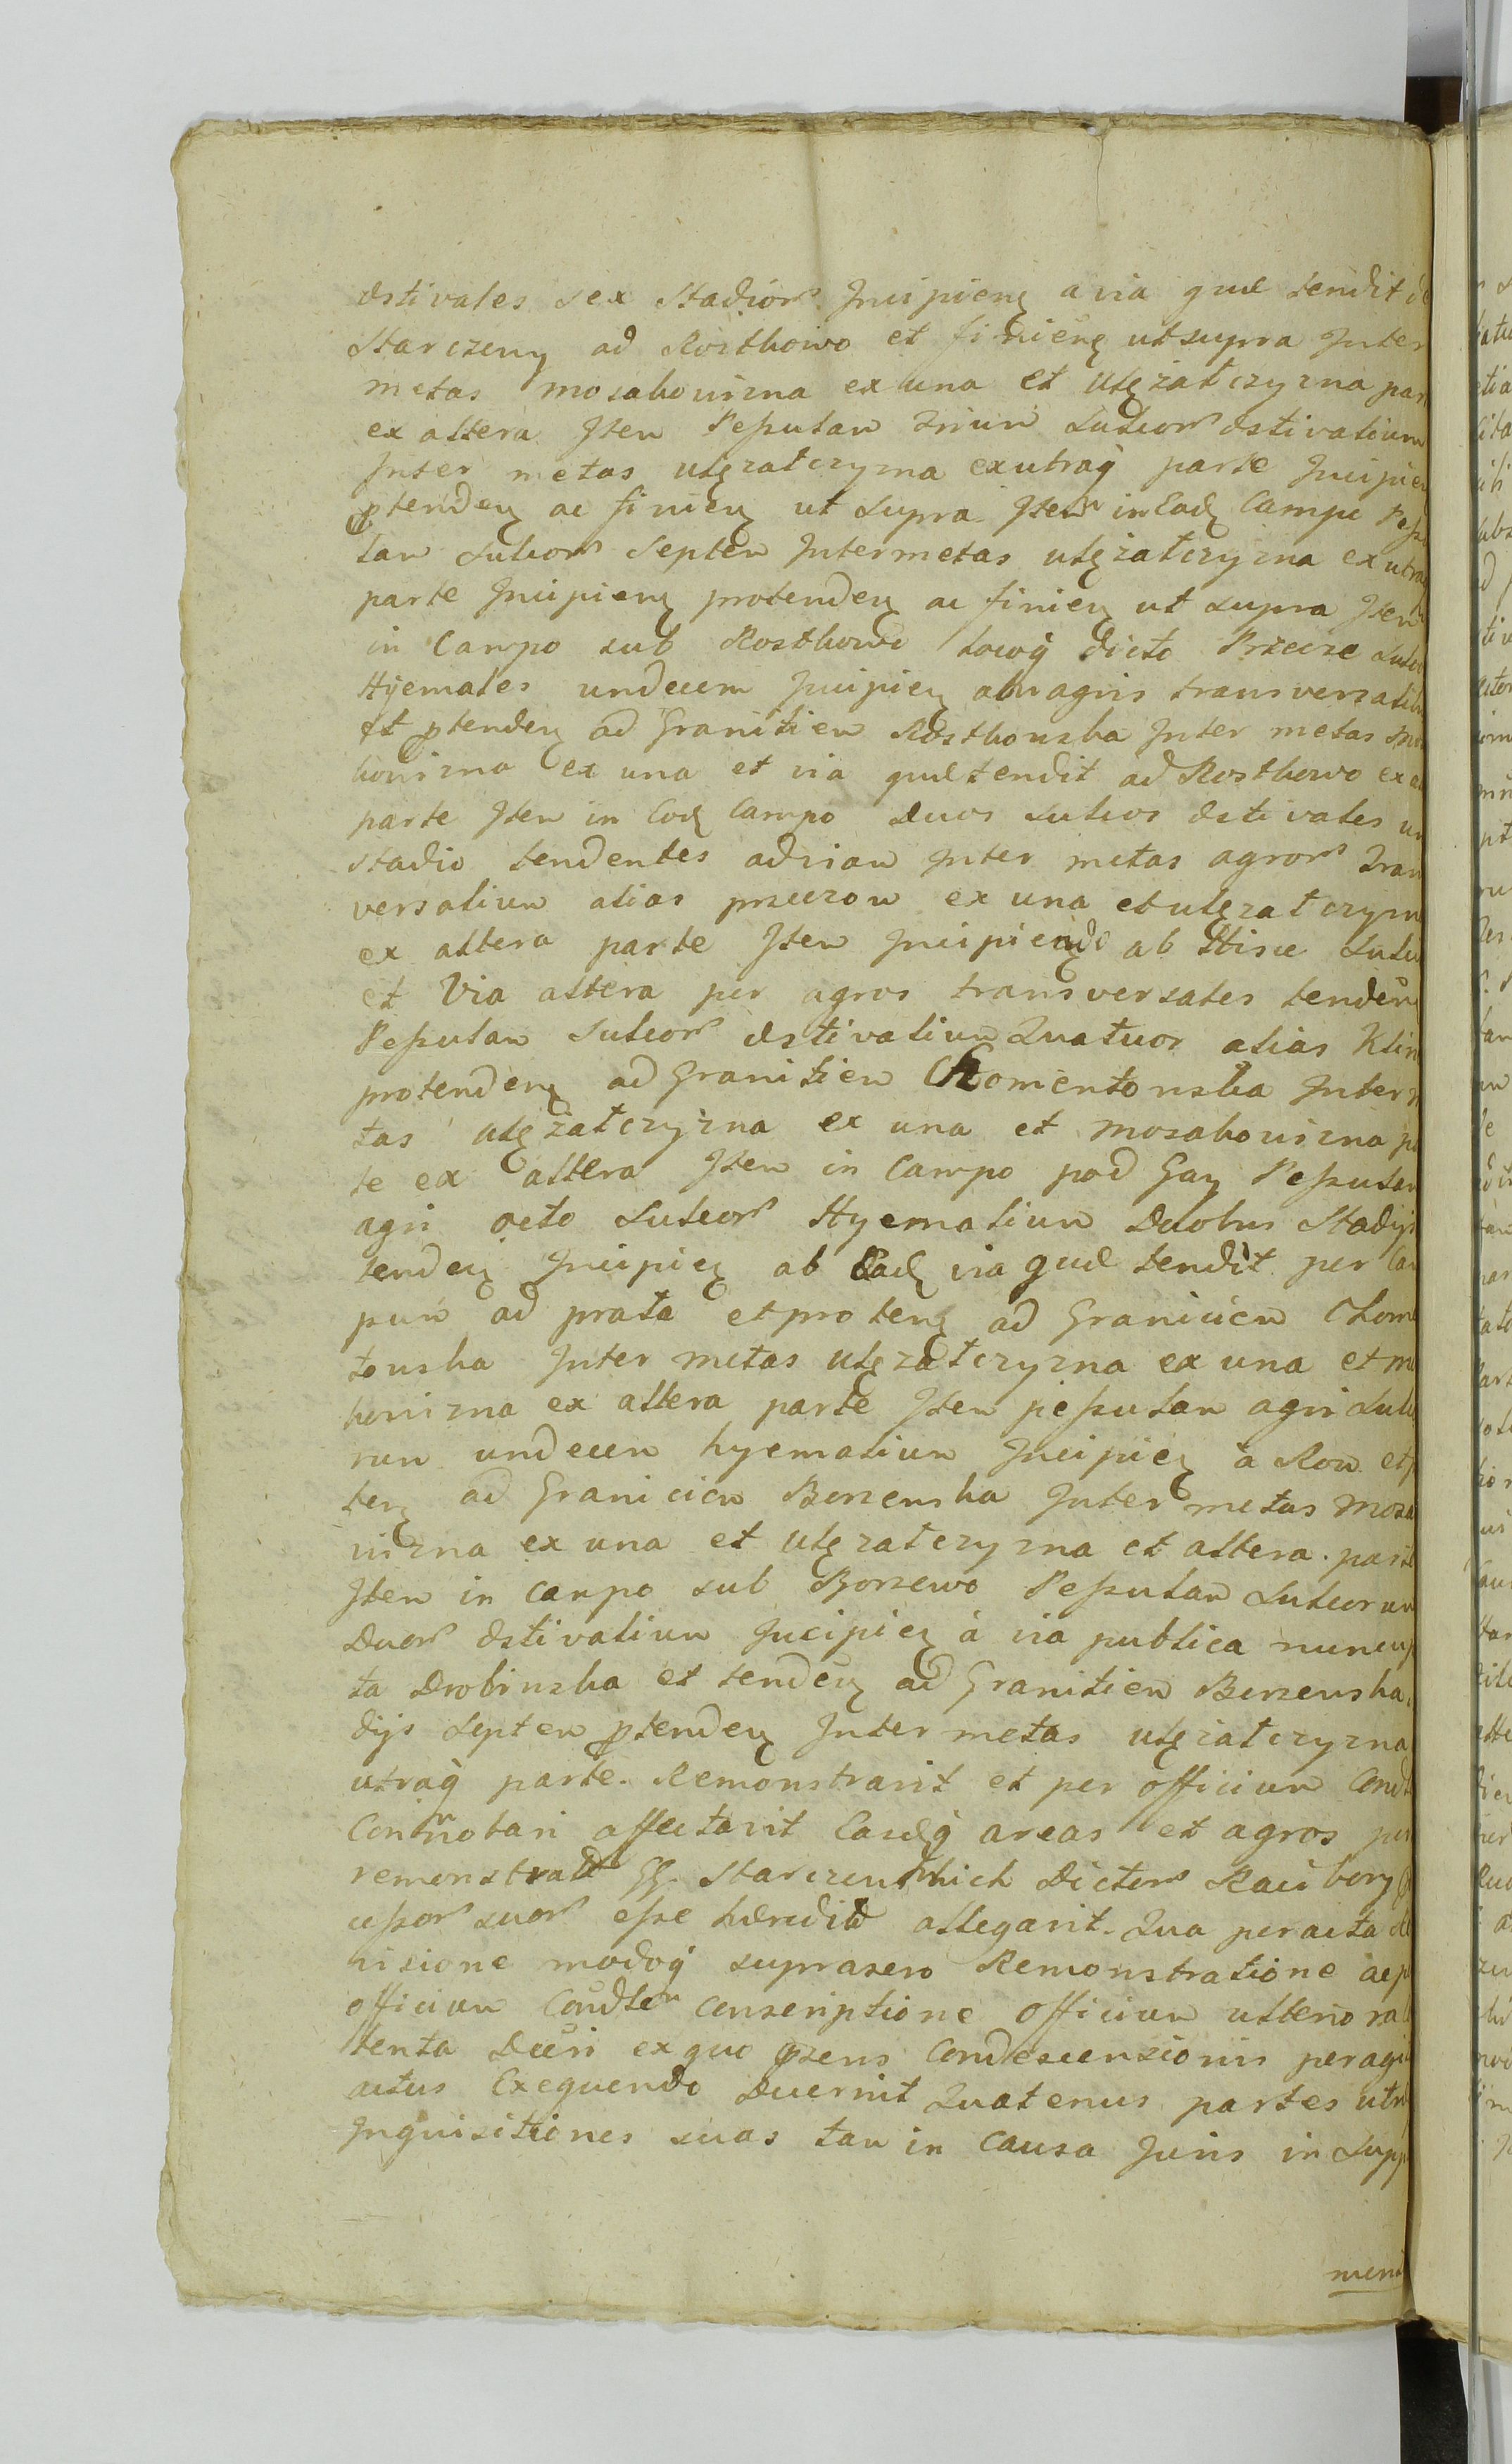 æstivales sex Stadior. Incipien a via quæ tendit de
Starczeny ad Rostkowo et finien ut supra Inter
metas mozakowizna ex una et ulęzałczyzna par
ex altera Item Peszutam trium Sulcor æstivalium
Inter metas ulęzałczyzna ex utraq parte Incipien
ptenden ac finien ut supra Item in Ead Campo Peszu
tam Sulcor Septem Inter metas ulęzałczyzna ex utra
parte Incipien protenden ac finien ut supra Item
in Campo sub Rostkowo Locoq dicto Przecze Sulco
Hyemales undecem Incipien ab agris transversalib
et ptenden ad Granitiem Rostkowska Inter metas mo
kowizna ex una et via quæ tendit ad Rostkowo ex al
parte Item in Eod Campo Duos Sulcos æstivales un
stadio tendentes ad viam Inter metas agror Tran
versalium alias przeczow ex una et ulęzałczyzn
ex altera parte Item Incipiendo ab Hisce Sulci
et Via altera per agros transversales tenden
Peszutam Sulcor æstivalium Quatuor alias Klin
protenden ad Granitiem Chomentowska Inter m
tas ulęzałczyzna ex una et mozakowizna pa
te ex altera Item in Campo pod Gay Peszutam
agri octo Sulcor Hyemalium Duobus Stadijs
tenden Incipien ab Ead via quæ tendit per Cam
pum ad prata et proten ad Graniciem Chome
towska Inter metas ulęzałczyzna ex una et mo
kowizna ex altera parte Item peszutam agri Sulco
rum undecem hyemalium Incipien a Row et p
ten ad Graniciem Borzewska Inter metas moza
wizna ex una et ulęzałczyzna et altera parte
Item in Campo sub Borzewo Peszutam Sulcorum
Duor æstivalium Incipien à via publica nuncup
ta Drobinska et tenden ad Granitiem Borzewska
dijs Septem ptenden Inter metas ulęzałczyzna
utraq parte. Remonstravit et per officium Condt
Connotari affectavit Easdq areas et agros per
remonstrat GG. Starczewskich Dictor Raciborg
uxor suor esse hæredit allegavit. Qua peracta
visione modoq suprasero Remonstratione ac p
officium Condten conscriptione officium ulteriora
tenta Decri ex quo psens Condescensionis peragi
actus Exequendo Decrevit Quatenus partes utr
Inquisitiones suas tam in Causa Juris in Supp